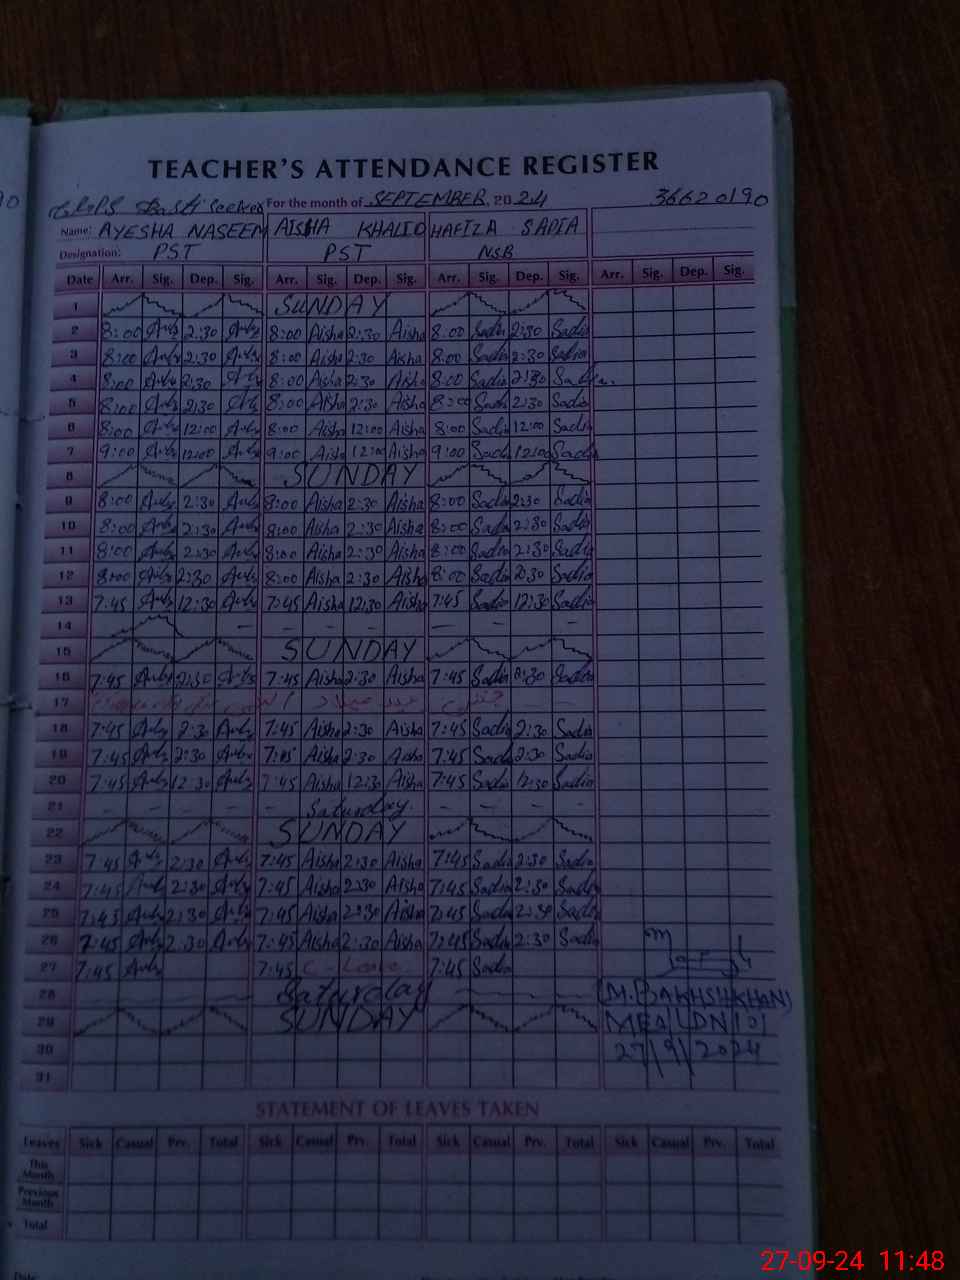 TEACHER'S ATTENDANCE REGISTER
For the month of SEPTEMBER, 2024 36620190
Name: AYESHA NASEEM AISHA KHALID HAFIZA SADIA
Designation: PST PST NSB
Date Arr. Sig. Dep. Sig. Arr. Sig. Dep. Sig. Arr. Sig. Dep. Sig. Arr. Sig. Dep. Sig.
1 SUNDAY
2 8:00 2:30 8:00 Aisha 2:30 Aisha 8:00 Sadia 2:30 Sadia
3 8:00 2:30 8:00 Aisha 2:30 Aisha 8:00 Sadia 2:30 Sadia
4 8:00 2:30 8:00 Aisha 2:30 Aisha 8:00 Sadia 2:30 Sadia
5 8:00 2:30 8:00 Aisha 2:30 Aisha 8:00 Sadia 2:30 Sadia
6 8:00 12:00 8:00 Aisha 12:00 Aisha 8:00 Sadia 12:00 Sadia
7 9:00 12:00 9:00 Aisha 12:00 Aisha 9:00 Sadia 12:00 Sadia
8 SUNDAY
9 8:00 2:30 8:00 Aisha 2:30 Aisha 8:00 Sadia 2:30 Sadia
10 8:00 2:30 8:00 Aisha 2:30 Aisha 8:00 Sadia 2:30 Sadia
11 8:00 2:30 8:00 Aisha 2:30 Aisha 8:00 Sadia 2:30 Sadia
12 8:00 2:30 8:00 Aisha 2:30 Aisha 8:00 Sadia 2:30 Sadia
13 7:45 12:30 7:45 Aisha 12:30 Aisha 7:45 Sadia 12:30 Sadia
14
15 SUNDAY
16 7:45 2:30 7:45 Aisha 2:30 Aisha 7:45 Sadia 2:30 Sadia
17
18 7:45 2:30 7:45 Aisha 2:30 Aisha 7:45 Sadia 2:30 Sadia
19 7:45 2:30 7:45 Aisha 2:30 Aisha 7:45 Sadia 2:30 Sadia
20 7:45 12:30 7:45 Aisha 12:30 Aisha 7:45 Sadia 12:30 Sadia
21 Saturday
22 SUNDAY
23 7:45 2:30 7:45 Aisha 2:30 Aisha 7:45 Sadia 2:30 Sadia
24 7:45 2:30 7:45 Aisha 2:30 Aisha 7:45 Sadia 2:30 Sadia
25 7:45 2:30 7:45 Aisha 2:30 Aisha 7:45 Sadia 2:30 Sadia
26 7:45 2:30 7:45 Aisha 2:30 Aisha 7:45 Sadia 2:30 Sadia
27 7:45 7:45 C-Leave 7:45 Sadia
28 Saturday (M.BAKHSH KHAN)
29 SUNDAY MEA LDN 101
30 27/9/2024
31
STATEMENT OF LEAVES TAKEN
Leaves Sick Casual Prv. Total Sick Casual Prv. Total Sick Casual Prv. Total Sick Casual Prv. Total
This Month
Previous Month
Total
27-09-24 11:48